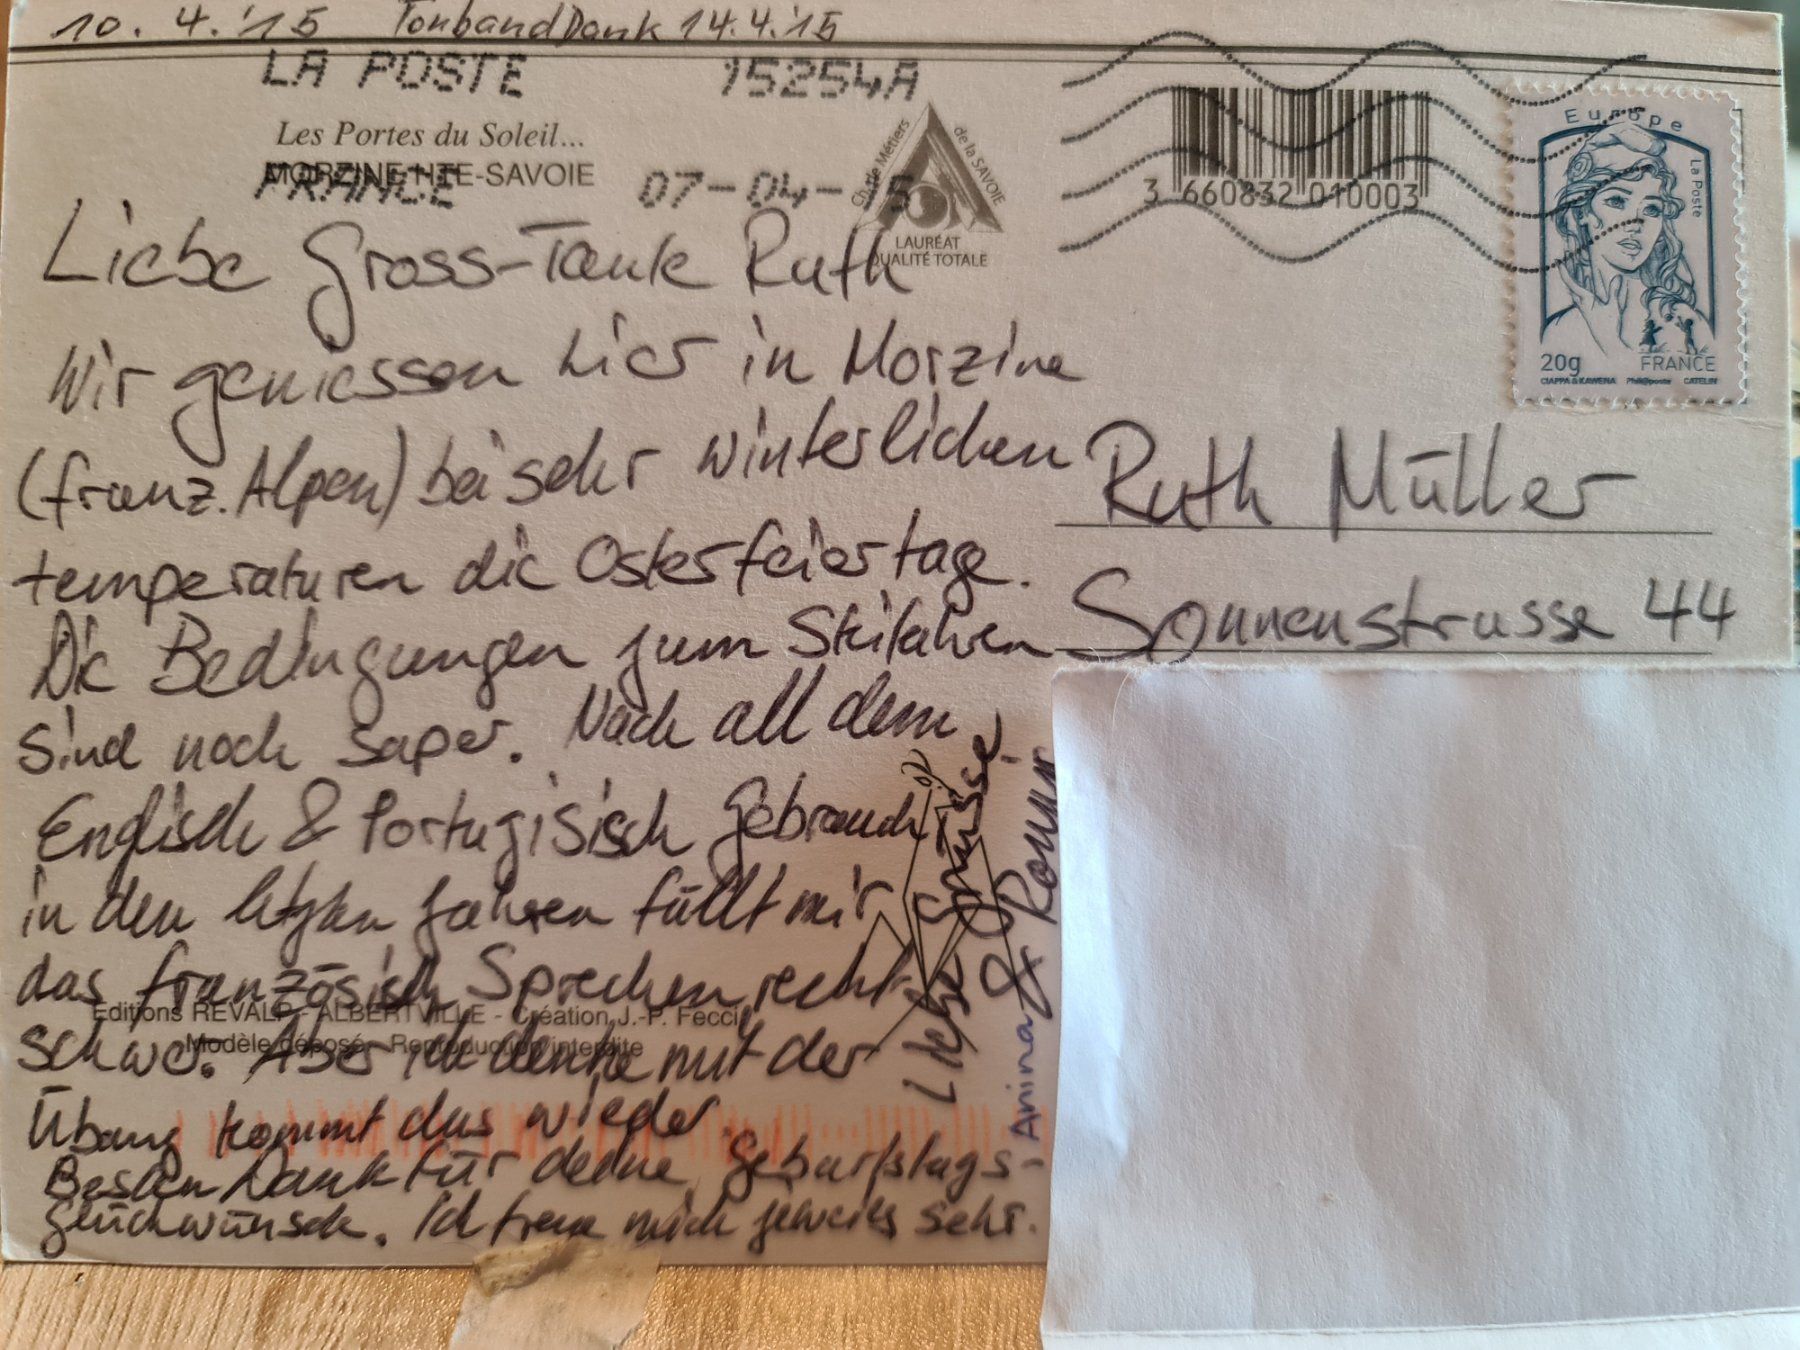 10. 4. '15 TonbandDank 14.4.'15
LA POSTE 15254A
Les Portes du Soleil...
MORZINE HTE-SAVOIE
FRANCE 07-04-15
Ch. de Métiers de la SAVOIE
LAURÉAT
QUALITÉ TOTALE
3 660832 010003
Europe
La Poste
20g FRANCE
CIAPPA & KAWENA Phil@poste CATELIN
Liebe Gross-Tante Ruth
Wir geniessen hier in Morzine
(franz. Alpen) bei sehr winterlichen
temperaturen die Osterfeiertage.
Die Bedingungen zum Skifahren
sind noch super. Nach all dem
Englisch & Portugisisch Gebrauch
in den letzten Jahren fällt mir
das französisch Sprechen recht
schwer. Aber ich denke mit der
Übung kommt das wieder.
Besten Dank für deine Geburtstags-
glückwünsche. Ich freue mich jeweils sehr.
Liebe Grüsse
Anina & Romur
Editions REVALP - ALBERTVILLE - Création J.-P. Fecci
Modèle déposé - Reproduction interdite
Ruth Müller
Sonnenstrasse 44